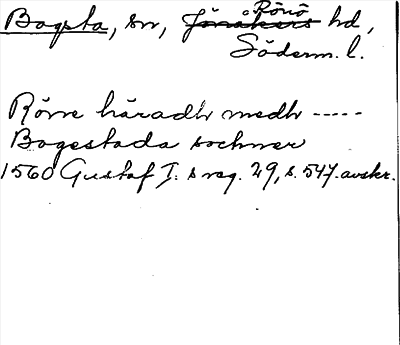 Bogsta, sn, Rönö hd,
Söderm. l.
Röne häradh medh -----
Bogestada sochner
1560 Gustaf I:s reg. 29, s. 547. avskr.